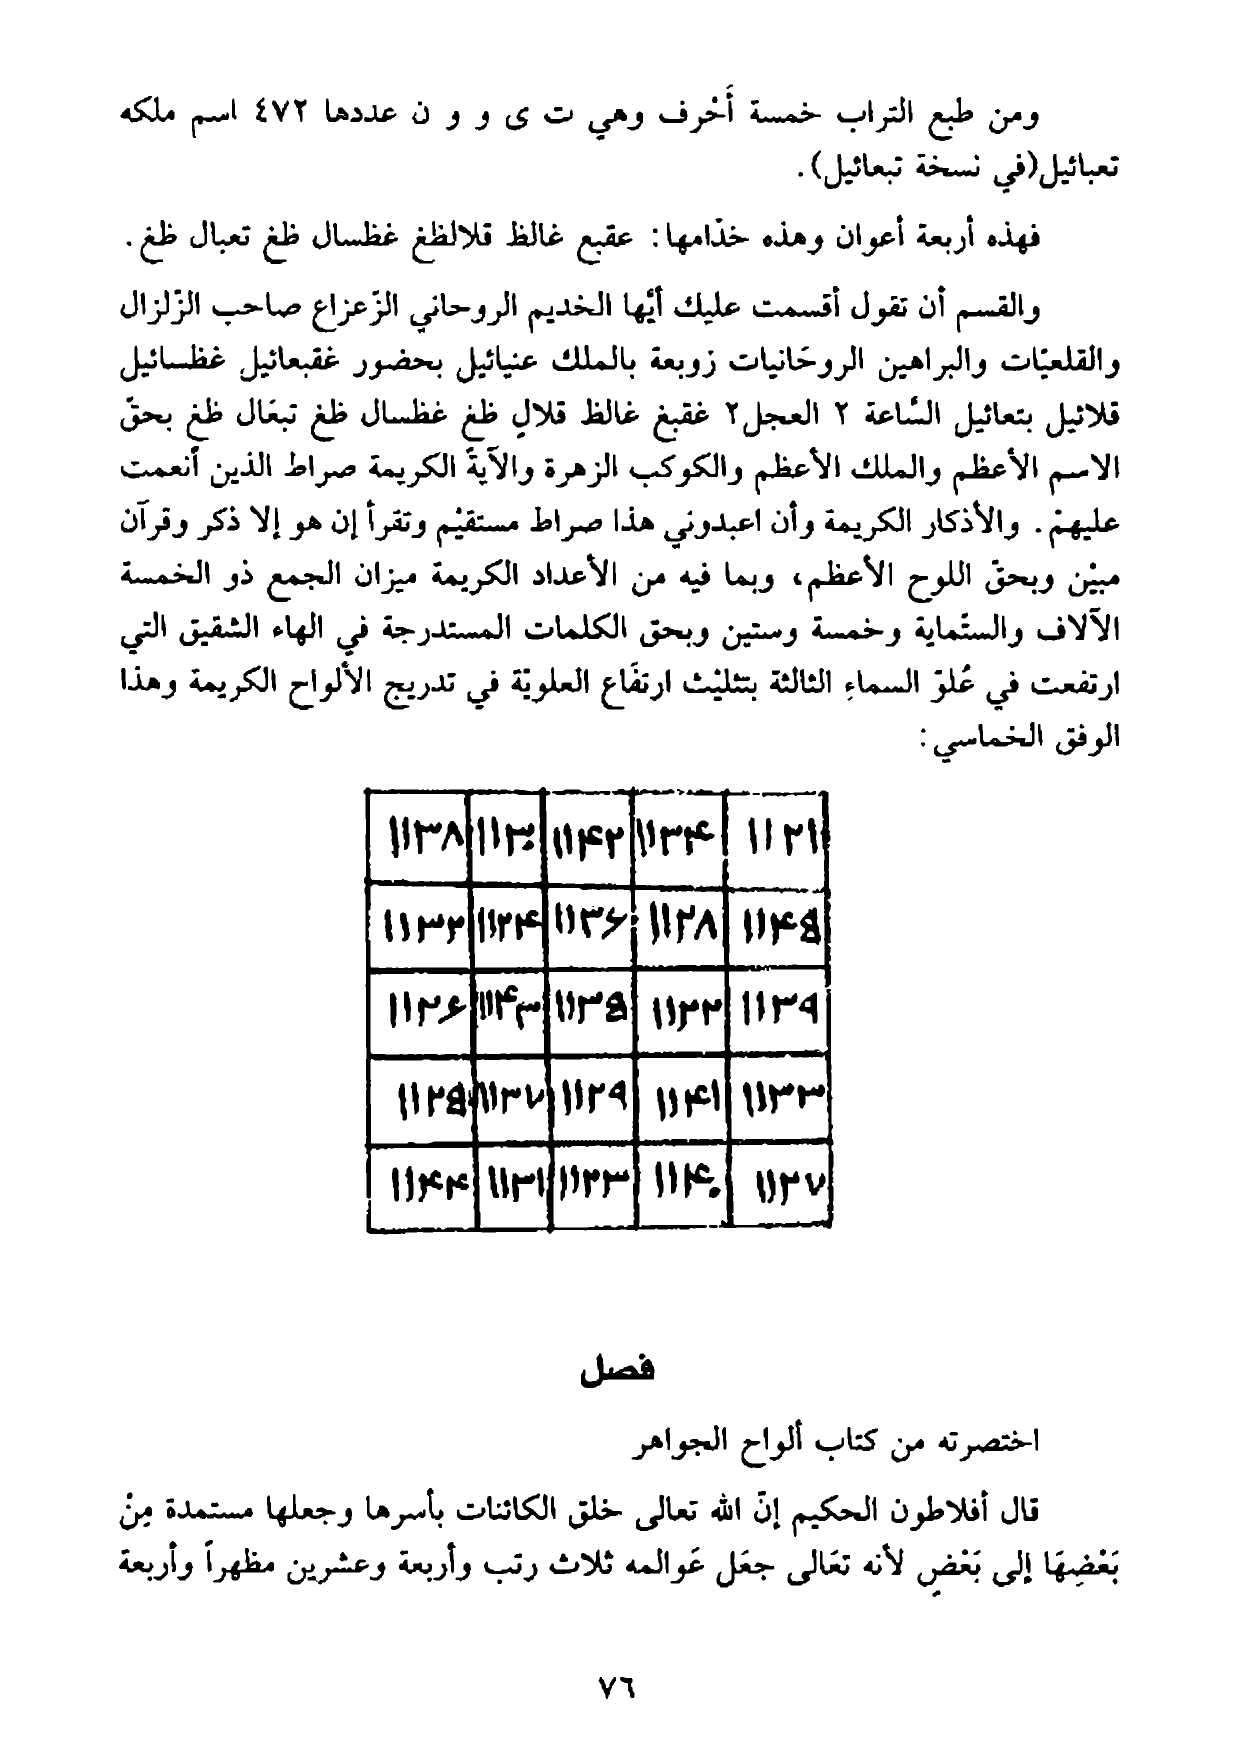 ومن طبع التراب خمسة أَحْرف وهي ت ى و و ن عددها ٤٧٢ اسم ملكه
تعبائيل(في نسخة تبعائيل).
فهذه أربعة أعوان وهذه خدّامها: عقبع غالظ قلالظغ غظسال ظغ تعبال ظغ.
والقسم أن تقول أقسمت عليك أيّها الخديم الروحاني الزّعزاع صاحب الزّلزال
والقلعيّات والبراهين الروحَانيات زوبعة بالملك عنيائيل بحضور غقبعائيل غظسائيل
قلائيل بتعائيل السَّاعة ٢ العجل٢ غقبغ غالظ قلالٍ ظغ غظسال ظغ تبعَال ظغ بحقّ
الاسم الأعظم والملك الأعظم والكوكب الزهرة والآيةَ الكريمة صراط الذين أنعمت
عليهمْ. والأذكار الكريمة وأن اعبدوني هذا صراط مستقيْم وتقرأ إن هو إلا ذكر وقرآن
مبيْن وبحقّ اللوح الأعظم، وبما فيه من الأعداد الكريمة ميزان الجمع ذو الخمسة
الآلاف والستّماية وخمسة وستين وبحق الكلمات المستدرجة في الهاء الشقيق التي
ارتفعت في عُلوّ السماءِ الثالثة بتثليْث ارتفَاع العلويّة في تدريج الألواح الكريمة وهذا
الوفق الخماسي:
۱۱۳۸ ۱۱۳۰ ۱۱۴۲ ۱۱۳۴ ۱۱۲۱
۱۱۳۲ ۱۱۲۴ ۱۱۳۶ ۱۱۲۸ ۱۱۴۵
۱۱۲۶ ۱۱۴۳ ۱۱۳۵ ۱۱۲۲ ۱۱۳۹
۱۱۲۵ ۱۱۳۷ ۱۱۲۹ ۱۱۴۱ ۱۱۳۳
۱۱۴۴ ۱۱۳۱ ۱۱۲۳ ۱۱۴۰ ۱۱۲۷
فصل
اختصرته من كتاب ألواح الجواهر
قال أفلاطون الحكيم إنّ الله تعالى خلق الكائنات بأسرها وجعلها مستمدة مِنْ
بَعْضِهَا إلى بَعْضٍ لأنه تعَالى جعَل عَوالمه ثلاث رتب وأربعة وعشرين مظهراً وأربعة
٧٦